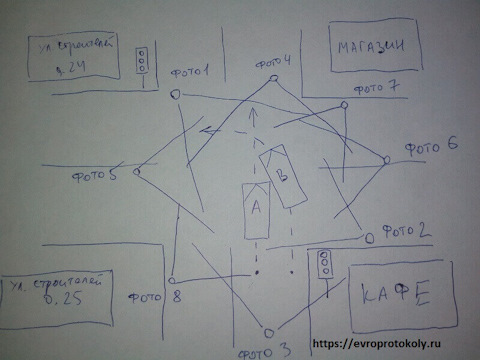 ул. строителей
д. 24
ФОТО 1
ФОТО 4
МАГАЗИН
ФОТО 7
ФОТО 6
ФОТО 5
А
В
ФОТО 2
ул. строителей
д. 25
ФОТО
8
КАФЕ
ФОТО 3
https://evroprotokoly.ru